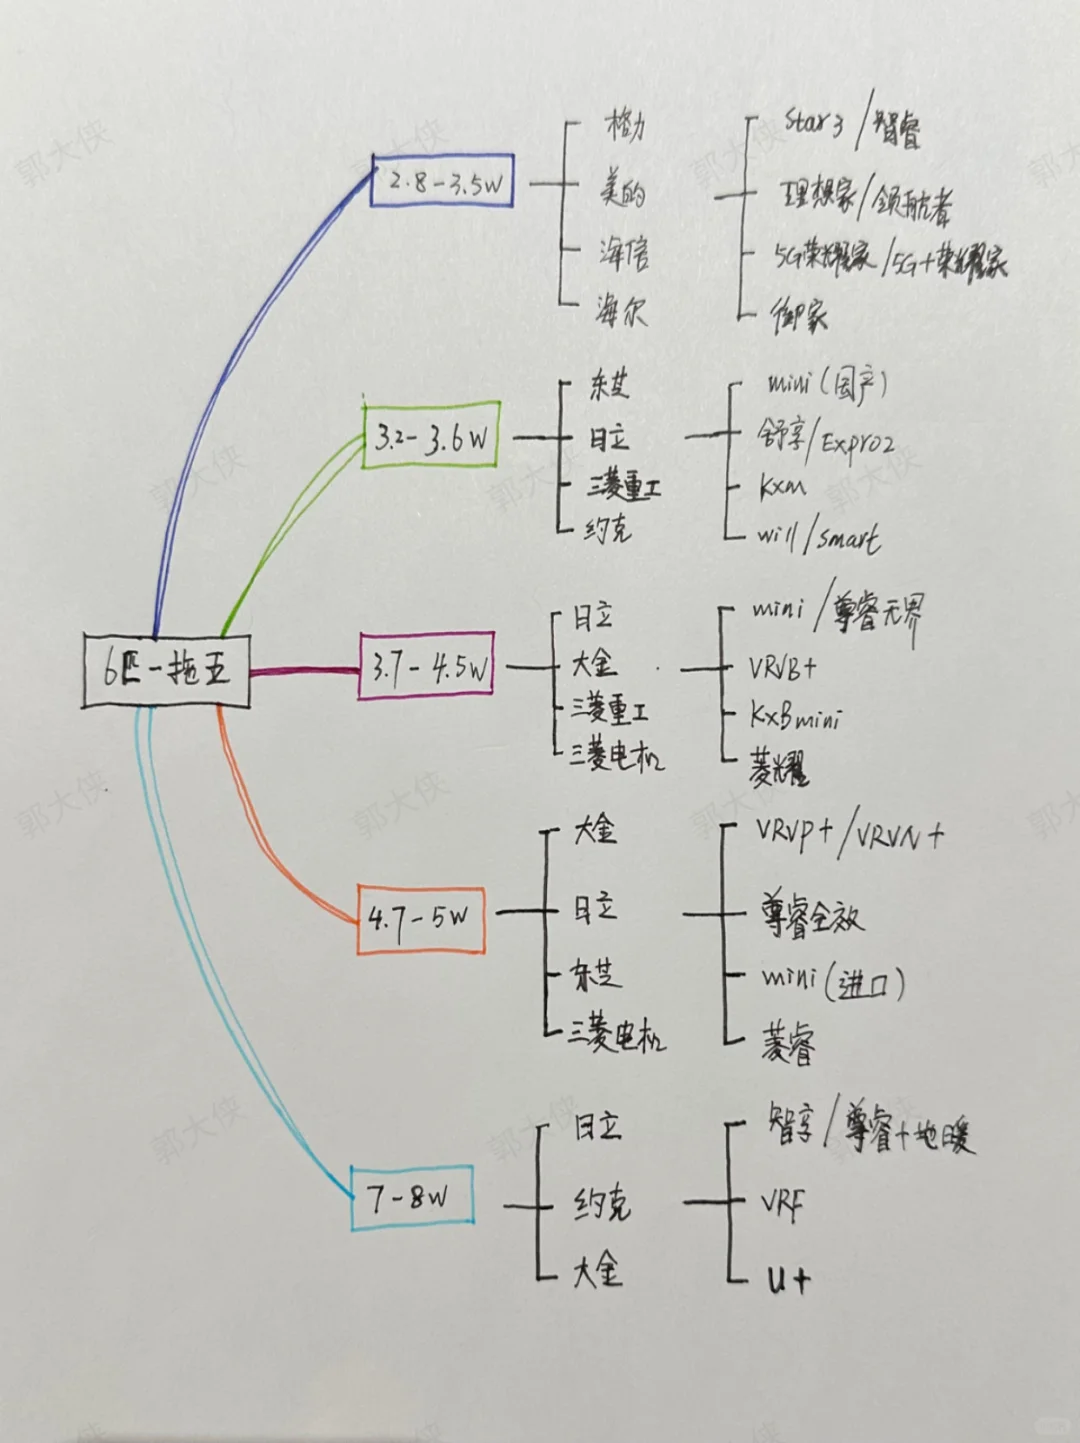 6匹一拖五
2.8-3.5W
格力 Star3/智睿
美的 理想家/领航者
海信 5G荣耀家/5G+荣耀家
海尔 御家
3.2-3.6W
东芝 mini(国产)
日立 舒享/Expro2
三菱重工 KXM
约克 will/smart
3.7-4.5W
日立 mini/尊睿无界
大金 VRVB+
三菱重工 KXBmini
三菱电机 菱耀
4.7-5W
大金 VRVP+/VRVN+
日立 尊睿全效
东芝 mini(进口)
三菱电机 菱睿
7-8W
日立 智享/尊睿+地暖
约克 VRF
大金 U+
郭大侠